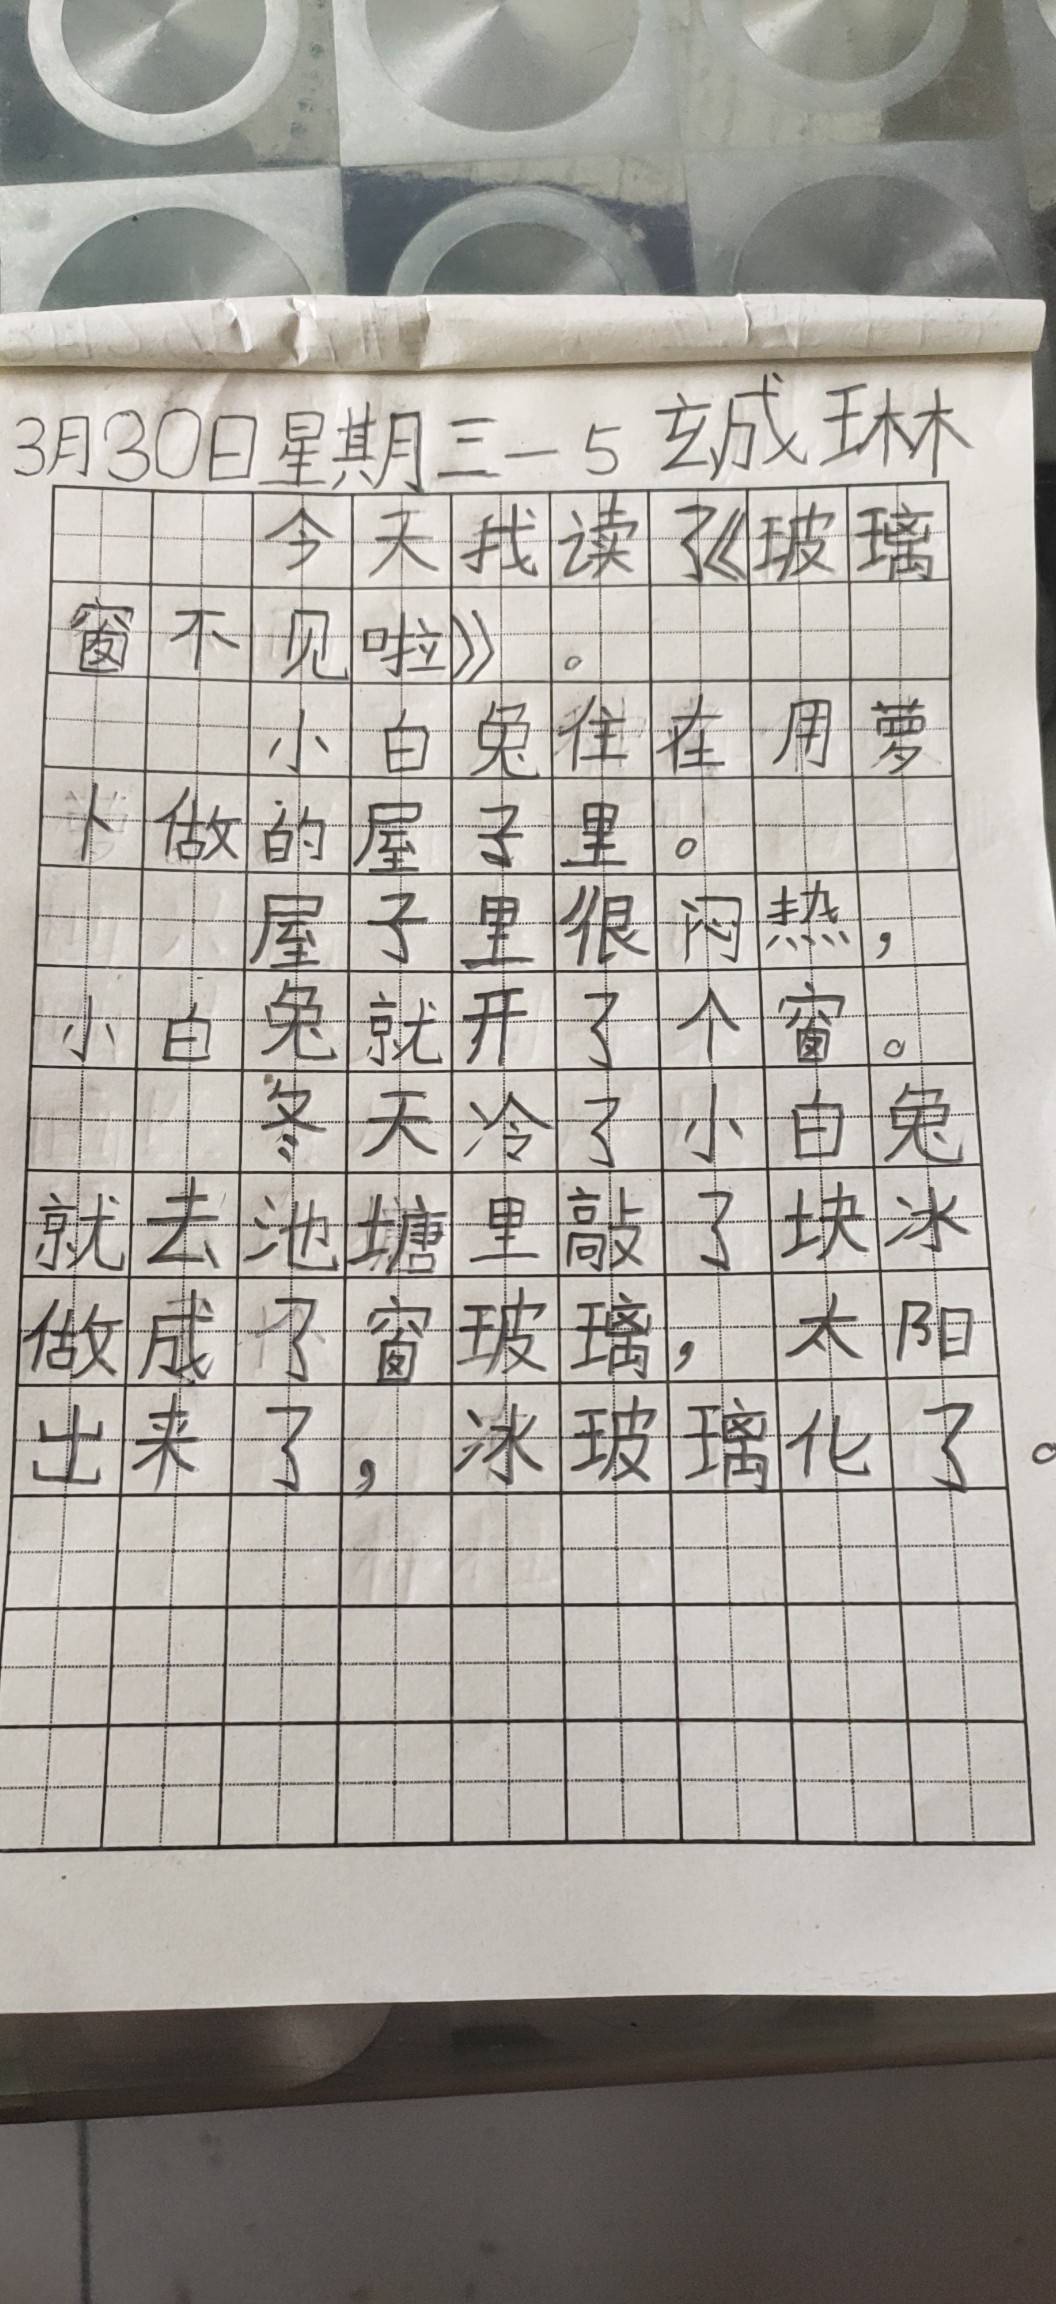 3月30日星期三一5 玄成琳
今天我读了《玻璃
窗不见啦》。
小白兔住在用萝
卜做的屋子里。
屋子里很闷热，
小白兔就开了个窗。
冬天冷了小白兔
就去池塘里敲了块冰
做成了窗玻璃，太阳
出来了，冰玻璃化了。